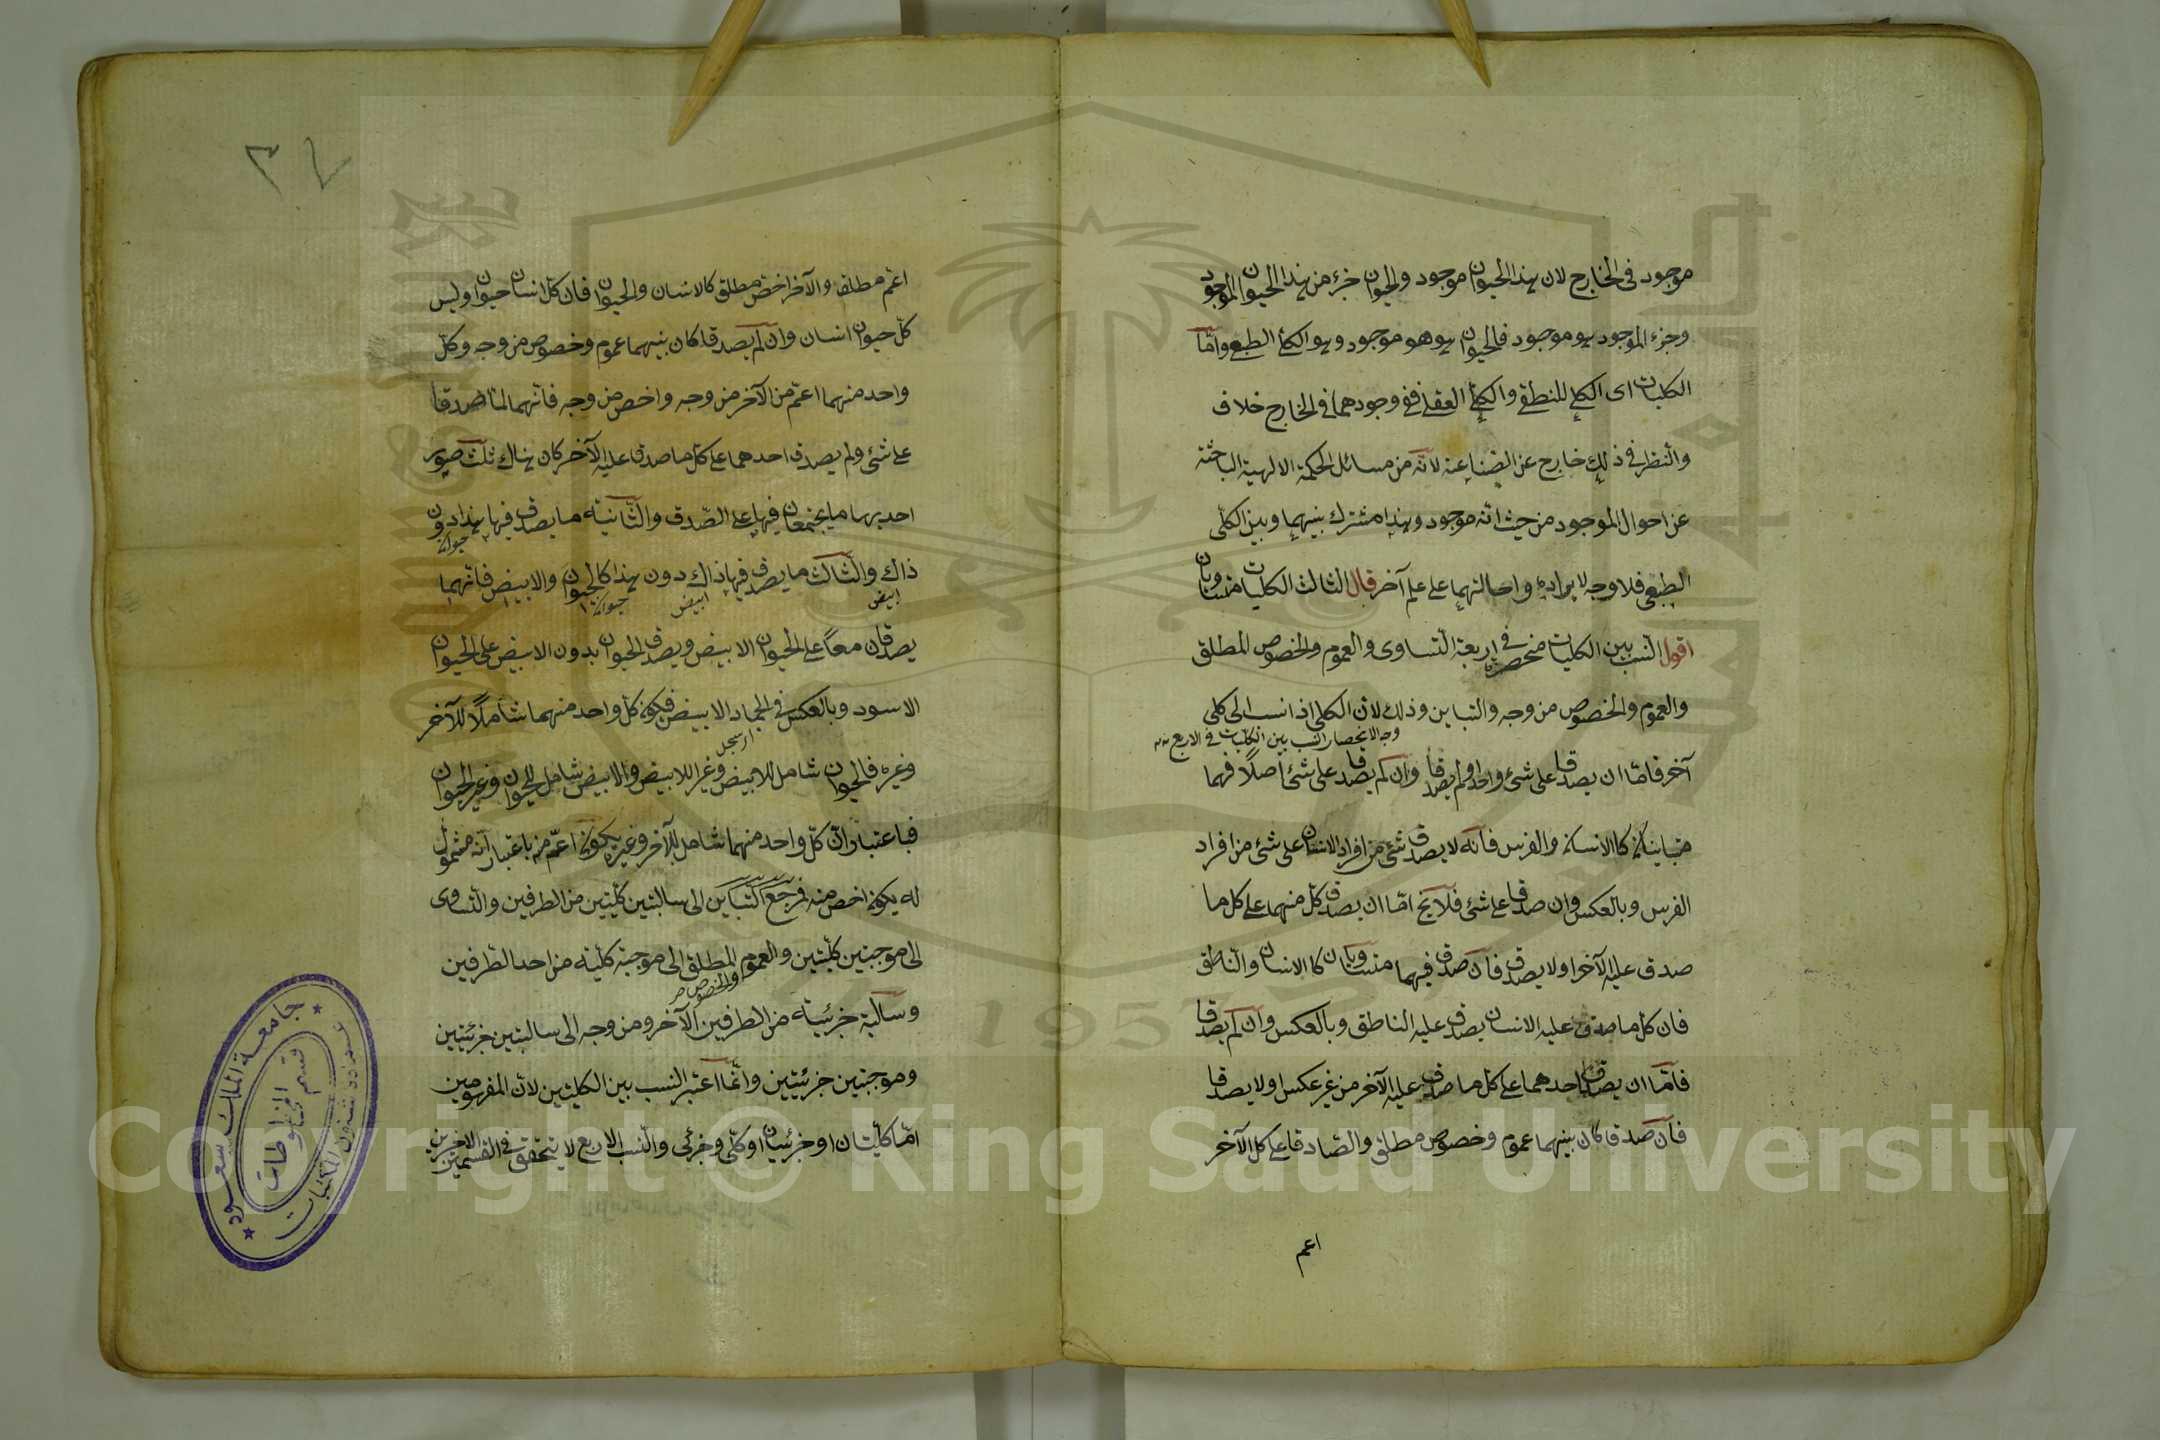 موجود فى الخارج لان هذا الحيوان موجود والحيوان جزء من هذا الحيوان الموجود
وجزء الموجود هو موجود فالحيوان هو هو موجود وهو الكلى الطبعى وامّا
الكليات اى الكلى المنطقى والكلى العقلى ففى وجودهما فى الخارج خلاف
والنظر فى ذلك خارج عن الصّناعة لانّه من مسائل الحكمة الالهية الباحثة
عن احوال الموجود من حيث انّه موجود وهذا مشترك بينهما وبين الكلّى
الطبعى فلا وجه لايراده واحالتهما على علم آخر قال الثالث الكليات متساويان
اقول النّسب بين الكليات منحصرة فى اربعة التّساوى والعموم والخصوص المطلق
والعموم والخصوص من وجه والتباين وذلك لانّ الكلى اذا نسب الى كلى
وجه الانحصار النسب بين الكليات فى الاربع
آخر فامّا ان يصدقا على شئ واحد او لم يصدقا وان لم يصدقا على شئ اصلًا فهما
متباينان كالانسان والفرس فانّه لا يصدق شئ من افراد الانسان على شئ من افراد
الفرس وبالعكس وان صدقا على شئ فلا يخ امّا ان يصدق كلّ منهما على كل ما
صدق عليه الآخر او لا يصدق فان صدق فيهما متساويان كالانسان والنّاطق
فان كل ما صدق عليه الانسان يصدق عليه الناطق وبالعكس وان لم يصدقا
فامّا ان يصدق احدهما على كل ما صدق عليه الآخر من غير عكس او لا يصدقا
فان صدقا كان بينهما عموم وخصوص مطلق والصّادقا على كل الآخر
اعم
٣٧
اعمّ مطلقا والآخر اخصّ مطلق كالانسان والحيوان فان كلّ انسان حيوان وليس
كلّ حيوان انسان وان لم يصدقا كان بينهما عموم وخصوص من وجه وكلّ
واحد منهما اعمّ من الآخر من وجه واخص من وجه فانّهما لمّا صدقا
على شئ ولم يصدق احدهما على كلّ ما صدق عليه الآخر كان هناك ثلث صور
احديها ما يجتمعان فيها على الصّدق والثّانية ما يصدق فيها هذا دون
حيوان
ذاك والثّالث ما يصدق فيها ذاك دون هذا كالحيوان والابيض فانّهما
ابيض ابيض حيوان
يصدقان معًا على الحيوان الابيض ويصدق الحيوان بدون الابيض على الحيوان
الاسود وبالعكس فى الجماد الابيض فيكون كلّ واحد منهما شاملًا للآخر
وغيره فالحيوان شامل للابيض وغير الابيض والابيض شامل للحيوان وغير الحيوان
فباعتبار انّ كلّ واحد منهما شامل للآخر وغيره يكون اعمّ منه باعتبار انّه مشمول
له يكون اخص منه فمرجع التّباين الى سالبتين كليّتين من الطرفين والتّساوى
الى موجبتين كليّتين والعموم المطلق الى موجبة كليّة من احد الطّرفين
والخصوص
وسالبة جزئيّة من الطرفين الآخر ومن وجه الى سالبتين جزئيتين
وموجبتين جزئيّتين وانّما اعتبر النسب بين الكليتين لانّ المفهومين
امّا كليّتان او جزئيان او كلّى وجزئى والنّسب الاربع لا يتحقق فى القسمين الاخرين
جامعة الملك سعود
عمادة شئون المكتبات
قسم المخطوطات
1957
Copyright © King Saud University